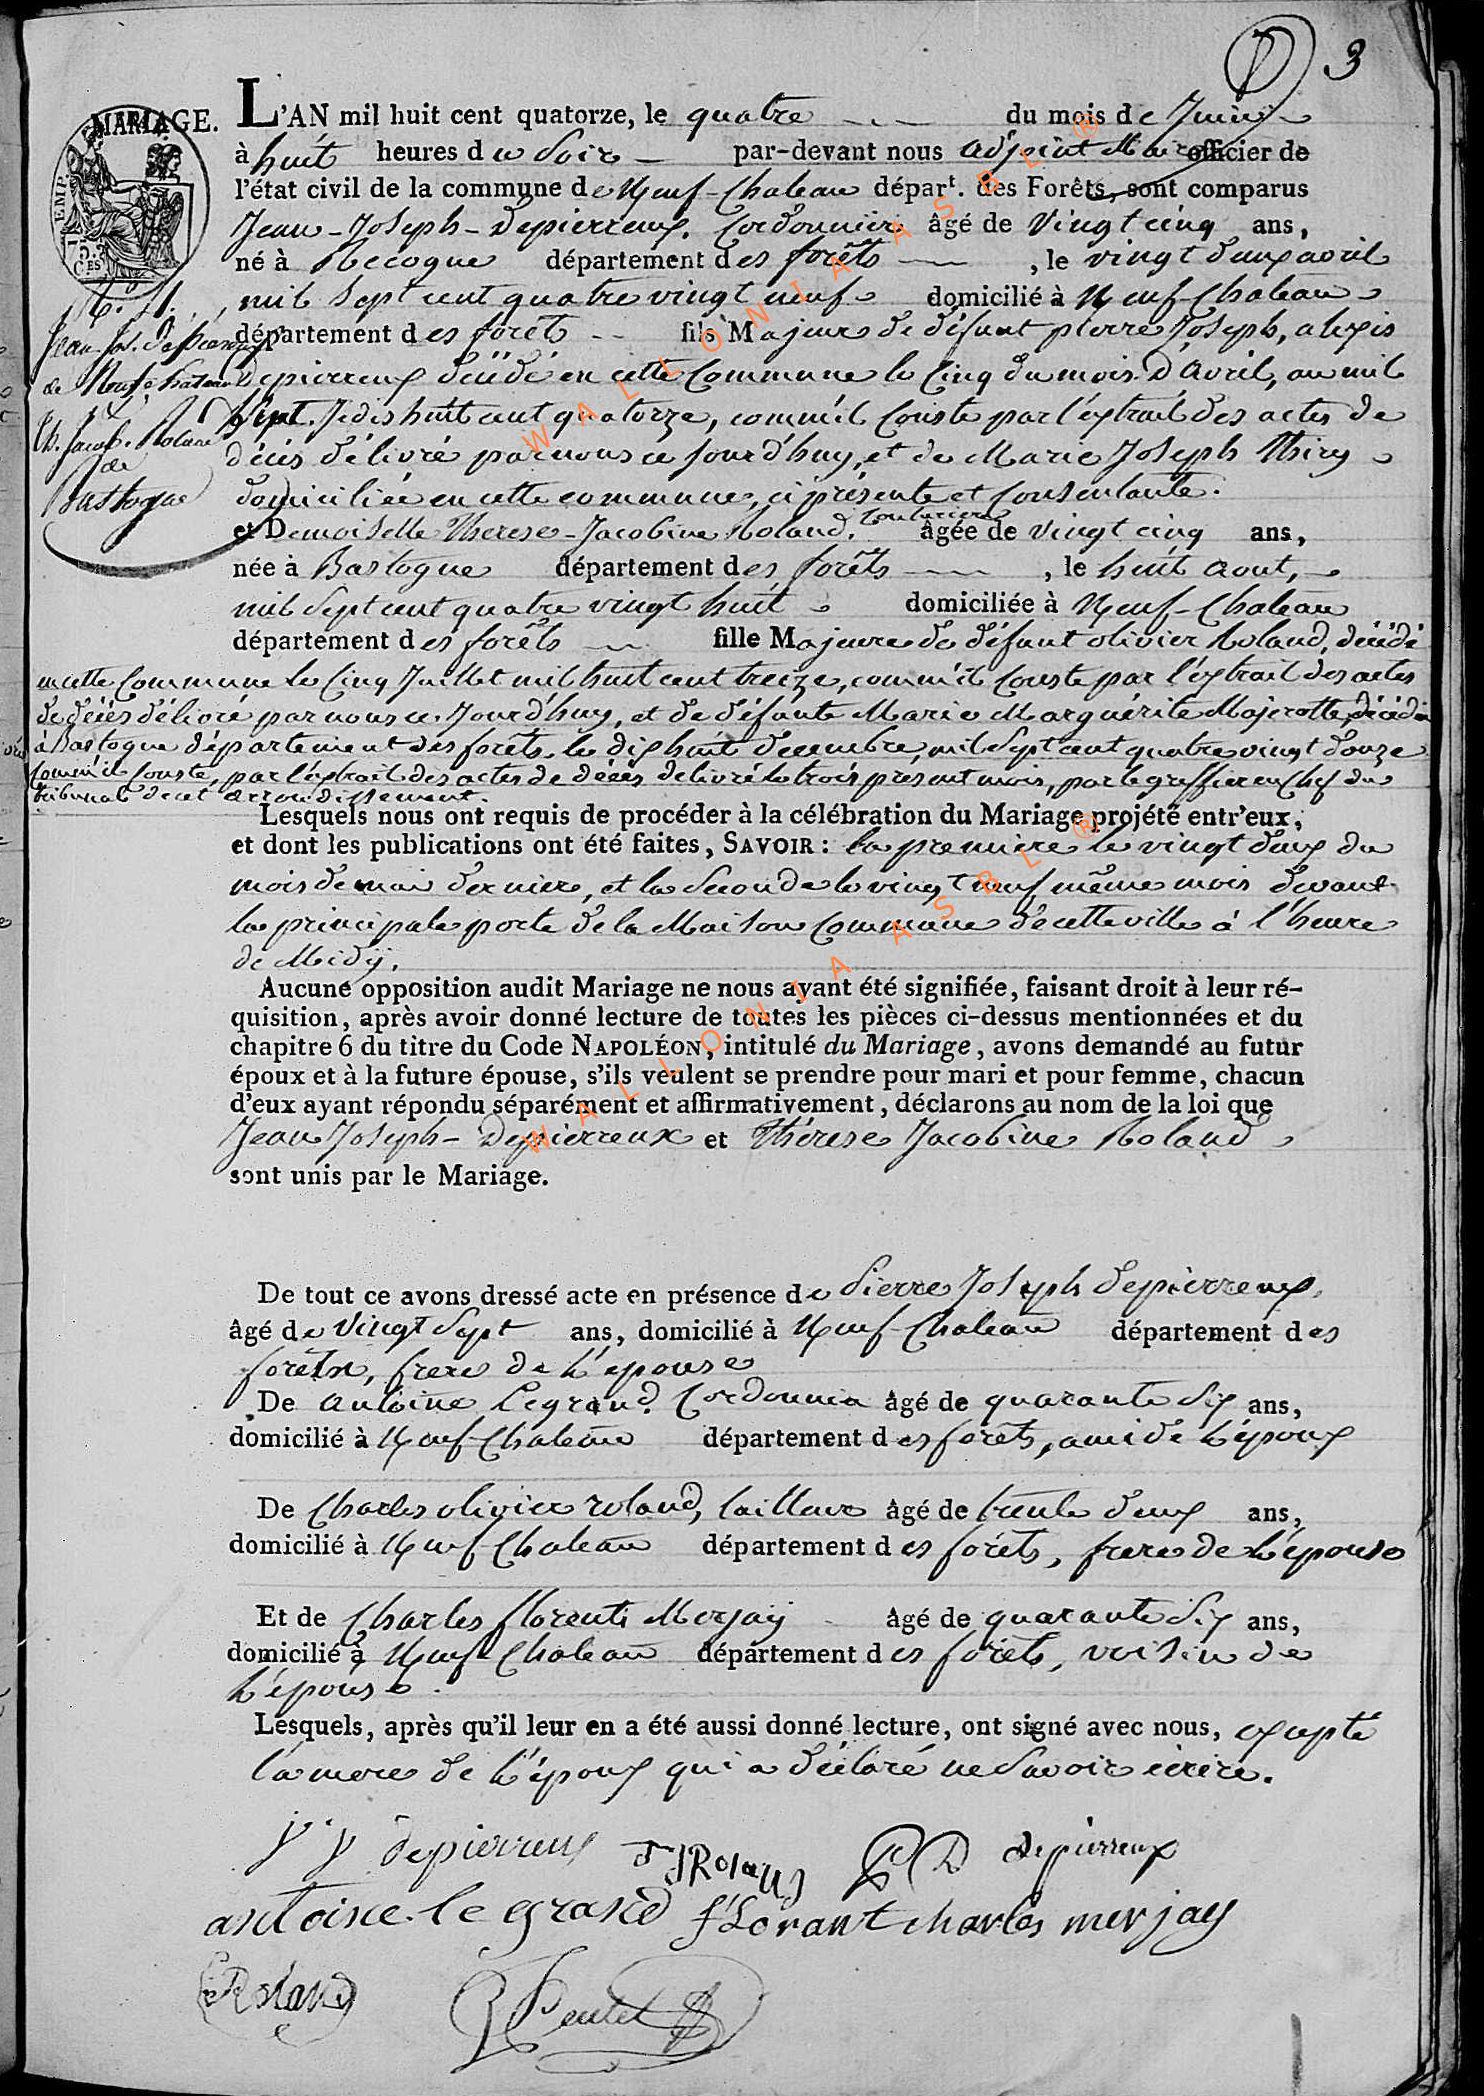 3
MARIAGE.
L'AN mil huit cent quatorze, le quatre du mois de Juin
à huit heures du Soir par-devant nous adjoint Maire officier de
l'état civil de la commune de Neuf-Chateau départ. des Forêts, sont comparus
Jean-Joseph-Depierreux, Cordonnier âgé de Vingt cinq ans,
né à Recogne département des forêts, le vingt deux avril
mil sept cent quatre vingt neuf domicilié à Neuf-Chateau
département des forêts fils Majeur de défunt pierre Joseph, alexis
Depierreux décédé en cette Commune le Cinq du mois D'avril, an mil
huit cent quatorze, comm'il Conste par l'extrait des actes de
décès délivré par nous ce Jourd'huy, et de Marie Joseph Thiry
domiciliée en cette commune, ci présente et Consentante.
M. N.
Jean-Jos. Depierreux
de Neufchateau
&
Th. Jacob. Roland
de
Bastogne
et Demoiselle Therese-Jacobine Roland, Couturiere âgée de vingt cinq ans,
née à Bastogne département des forêts, le huit Aout,
mil Sept cent quatre vingt huit domiciliée à Neuf-Chateau
département des forêts fille Majeure de défunt olivier Roland, décédé
en cette Commune le Cinq Juillet mil huit cent treize, comm'il Conste par l'extrait des actes
de décès délivré par nous ce Jourd'huy, et de défunte Marie Marguérite Majerotte décédée
à Bastogne département des forêts le dix huit decembre, mil Sept cent quatre vingt douze
Comm'il Conste, par l'extrait des actes de décès delivré le trois présent mois, par le greffier en Chef du
tribunal de cet arrondissement.
Lesquels nous ont requis de procéder à la célébration du Mariage projeté entr'eux,
et dont les publications ont été faites, SAVOIR : la premiere le vingt deux du
mois de mai dernier, et la Seconde le vingt neuf même mois devant
la principale porte de la Maison Commune de cette ville à l'heure
de Midy.
Aucune opposition audit Mariage ne nous ayant été signifiée, faisant droit à leur ré-
quisition, après avoir donné lecture de toutes les pièces ci-dessus mentionnées et du
chapitre 6 du titre du Code NAPOLÉON, intitulé du Mariage, avons demandé au futur
époux et à la future épouse, s'ils veulent se prendre pour mari et pour femme, chacun
d'eux ayant répondu séparément et affirmativement, déclarons au nom de la loi que
Jean Joseph-Depierreux et Thérese Jacobine Roland
sont unis par le Mariage.
De tout ce avons dressé acte en présence de Pierre Joseph depierreux,
âgé de Vingt Sept ans, domicilié à Neuf-Chateau département des
forêts, frere de l'epouse
De antoine Legrand, Cordonnier âgé de quarante Six ans,
domicilié à Neuf-Chateau département des forets, ami de l'époux
De Charles olivier roland, tailleur âgé de trente deux ans,
domicilié à Neuf-Chateau département des forêts, frere de l'epouse
Et de Charles florent Merjay âgé de quarante Six ans,
domicilié à Neuf-Chateau département des forêts, voisin de
l'épouse.
Lesquels, après qu'il leur en a été aussi donné lecture, ont signé avec nous, excepté
la mere de l'époux qui a déclaré ne Savoir écrire.
J J depierreux T J Roland P D depierreux
antoine le grand florant charles merjay
Roland
WALLONIA ASBL ®
WALLONIA ASBL ®